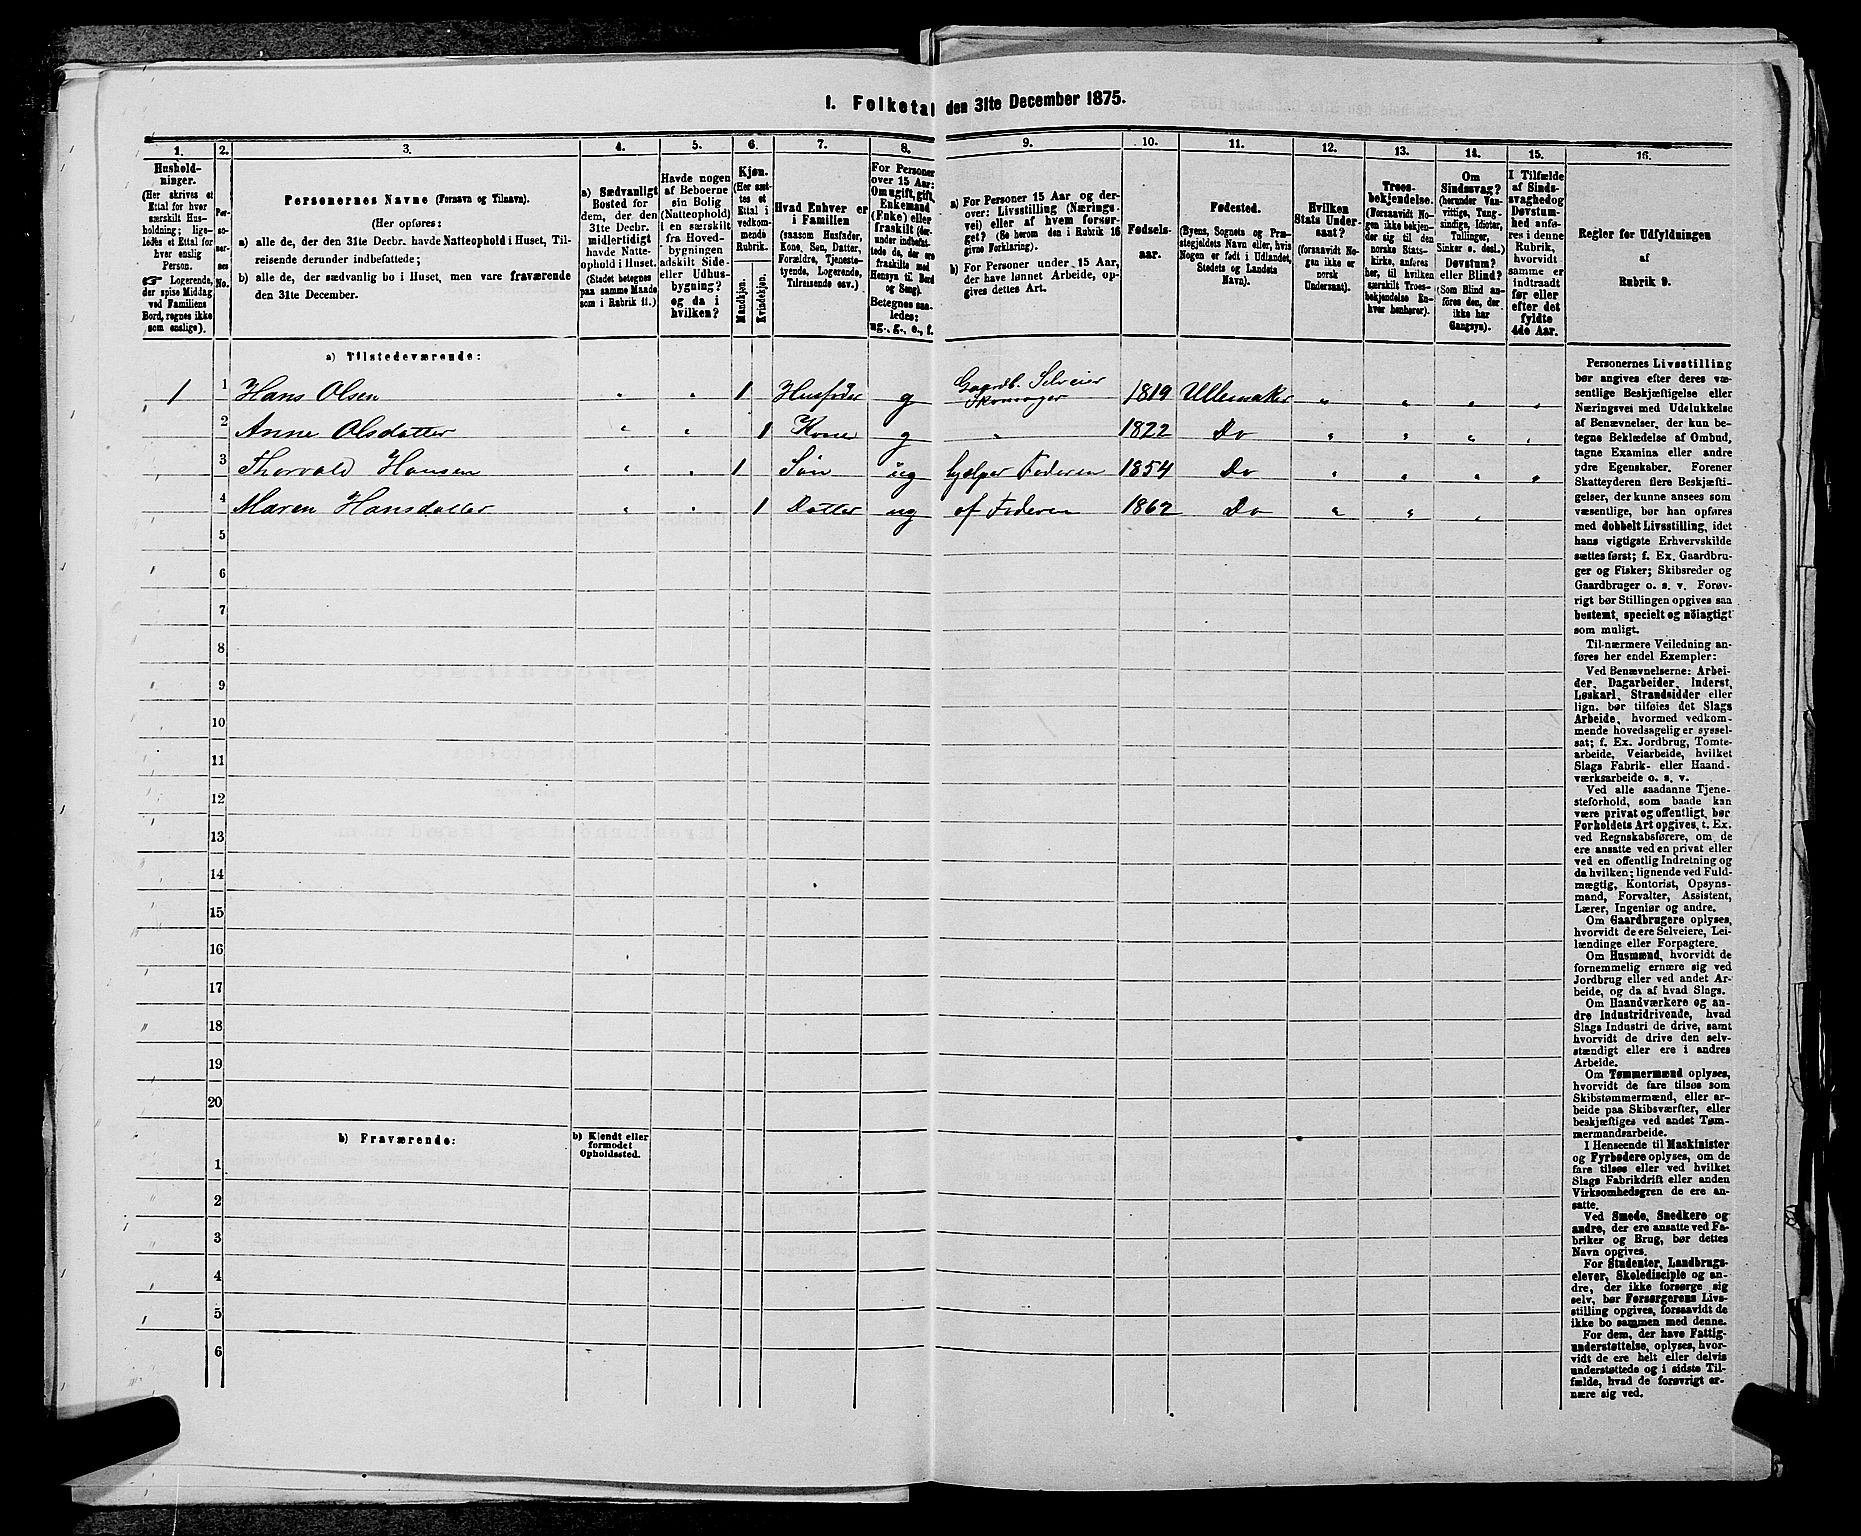 1. Folketal den 31te December 1875.
1.
Hushold-
ninger.
(Her skrives et
Ettal for hver
særskilt Hus-
holdning; lige-
ledes et Ettal for
hver enslig
Person.
☞ Logerende,
der spise Middag
ved Familiens
Bord, regnes ikke
som enslige).
2.
Per-
so-
ner-
nes
No.
3.
Personernes Navne (Fornavn og Tilnavn).
(Her opføres:
a) alle de, der den 31te Decbr. havde Natteophold i Huset, Til-
reisende derunder indbefattede;
b) alle de, der sædvanlig bo i Huset, men vare fraværende
den 31te December.
4.
a) Sædvanligt
Bosted for
dem, der den
31te Decbr.
midlertidigt
havde Natte-
ophold i Huset.
(Stedet betegnes
paa samme Maade
som i Rubrik 11.)
5.
Havde nogen
af Beboerne
sin Bolig
(Natteophold)
i en særskilt
fra Hoved-
bygningen
adskilt Side-
eller Udhus-
bygning?
og da i
hvilken?
6.
Kjøn.
(Her sæt-
tes et
Ettal i
vedkom-
mende
Rubrik.
Mandkjøn.
Kvindekjøn.
7.
Hvad Enhver er
i Familien
(saasom Husfader,
Kone, Søn, Datter,
Forældre, Tjeneste-
tyende, Logerende,
Tilreisende osv.).
8.
For Personer
over 15 Aar:
Om ugift, gift,
Enkemand
(Enke) eller
fraskilt (der-
under indbefat-
tede de, der ere
fraskilte med
Hensyn til Bord
og Seng).
Betegnes saa-
ledes:
ug., g., e., f.
9.
a) For Personer 15 Aar og der-
over: Livsstilling (Nærings-
vei) eller af hvem forsør-
get? (Se herom den i Rubrik 16
givne Forklaring).
b) For Personer under 15 Aar,
der have lønnet Arbeide, op-
gives dettes Art.
10.
Fødsels-
aar.
11.
Fødested.
(Byens, Sognets og Præ-
stegjeldets Navn eller, hvis
Nogen er født i Udlandet,
Stedets og Landets
Navn).
12.
Hvilken
Stats Under-
saat?
(forsaavidt No-
gen ikke er
norsk
Undersaat).
13.
Troes-
bekjendelse.
(Forsaavidt No-
gen ikke bekjen-
der sig til den
norske Stats-
kirke, anføres
her, til hvilken
særskilt Troes-
bekjendelse En-
hver henhører).
14.
Om
Sindssvag?
(herunder Van-
vittige, Tung-
sindige, Idioter,
Tullinger,
Sinker o. desl.).
Døvstum?
eller Blind?
(Som Blind an-
føres den, der
ikke har
Gangsyn).
15.
I Tilfælde
af Sinds-
svaghed og
Døvstum-
hed anfø-
res i denne
Rubrik,
hvorvidt
samme er
indtraadt
før eller
efter det
fyldte
4de Aar.
16.
Regler for Udfyldningen
af
Rubrik 9.
a) Tilstedeværende:
1 1 Hans Olsen " " 1 Husfader g Gaardb. Selveier
Skomager 1819 Ullensaker " " " "
2 Anne Olsdatter " " 1 Kone g " 1822 Do " " " "
3 Thorvald Hansen " " 1 Søn ug hjælper Faderen 1854 Do " " " "
4 Maren Hansdatter " " 1 Datter ug af Faderen 1862 Do " " "
5
6
7
8
9
10
11
12
13
14
15
16
17
18
19
20
b) Fraværende:
b) Kjendt eller
formodet
Opholdssted.
1
2
3
4
5
6
Personernes Livsstilling
bør angives efter deres væ-
sentlige Beskjæftigelse eller
Næringsvei med Udelukkelse
af Benævnelser, der kun be-
tegne Beklædelse af Ombud,
tagne Examina eller andre
ydre Egenskaber. Forener
Skatteyderen flere Beskjæfti-
gelser, der kunne ansees som
væsentlige, bør han opføres
med dobbelt Livsstilling, idet
hans vigtigste Erhvervskilde
sættes først; f. Ex. Gaardbru-
ger og Fisker; Skibsreder og
Gaardbruger o. s. v. Forøv-
rigt bør Stillingen opgives saa
bestemt, specielt og nøiagtigt
som muligt.
Til nærmere Veiledning an-
føres her endel Exempler:
Ved Benævnelserne: Arbei-
der, Dagarbeider, Inderst,
Løskarl, Strandsidder eller
lign. bør tilføies det Slags
Arbeide, hvormed vedkom-
mende hovedsagelig er syssel-
sat; f. Ex. Jordbrug, Tomte-
arbeide, Veiarbeide, hvilket
Slags Fabrik- eller Haand-
værksarbeide o. s. v.
Ved alle saadanne Tjene-
steforhold, som baade kan
være privat og offentligt, bør
Forholdets Art opgives, t. Ex.
ved Regnskabsførere, om de
ere ansatte ved en privat eller
ved en offentlig Indretning og
da hvilken; lignende ved Fuld-
mægtig, Kontorist, Opsyns-
mand, Forvalter, Assistent,
Lærer, Ingeniør og andre.
Om Gaardbrugere oplyses,
hvorvidt de ere Selveiere, Lei-
lændinge eller Forpagtere.
Om Husmænd, hvorvidt de
fornemmelig ernære sig ved
Jordbrug eller ved andet Ar-
beide, og da af hvad Slags.
Om Haandværkere og an-
dre Industridrivende, hvad
Slags Industri de drive, samt
hvorvidt de drive den selv-
stændigt eller ere i andres
Arbeide.
Om Tømmermænd oplyses,
hvorvidt de fare tilsøs som
Skibstømmermænd, eller ar-
beide paa Skibsværfter, eller
beskjæftiges ved andet Tøm-
mermandsarbeide.
I Henseende til Maskinister
og Fyrbødere oplyses, om de
fare tilsøs eller ved hvilket
Slags Fabrikdrift eller anden
Virksomhedsgren de ere an-
satte.
Ved Smede, Snedkere og
andre, der ere ansatte ved Fa-
briker og Brug, bør dettes
Navn opgives.
For Studenter, Landbrugs-
elever, Skoledisciple og an-
dre, der ikke forsørge sig
selv, bør Forsørgerens Livs-
stilling opgives, forsaavidt de
ikke bo sammen med denne.
For dem, der have Fattig-
understøttelse, oplyses, hvor-
vidt de ere helt eller delvis
understøttede og i sidste Til-
fælde, hvad de forøvrigt er-
nære sig ved.